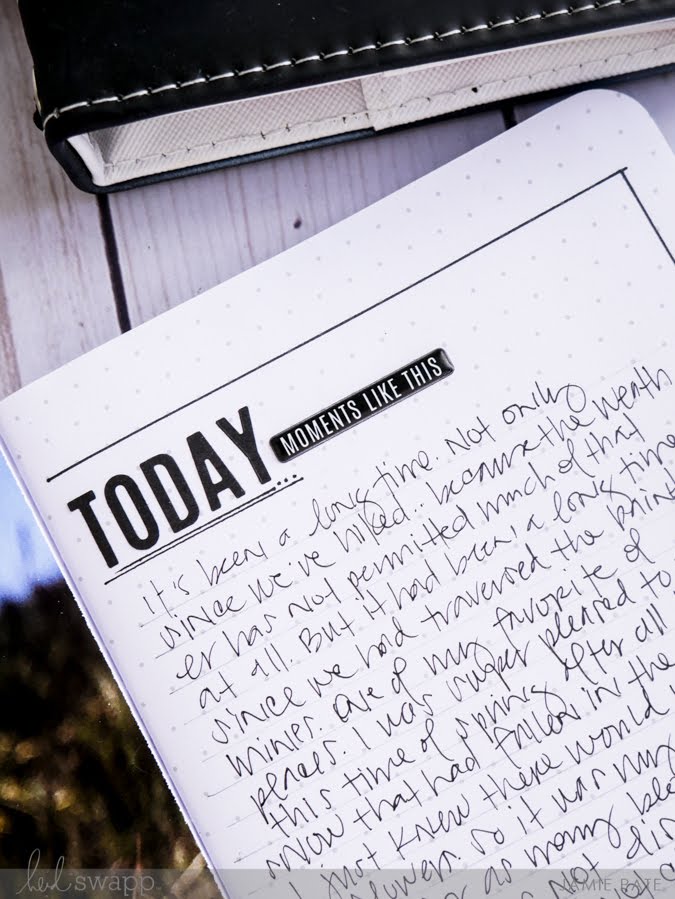 TODAY
MOMENTS LIKE THIS
it's been a long time. Not only
since we've hiked.. because the weath
er has not permitted much of that
at all. But it had been a long time
since we had traversed the
One of my favorite
places. I was super pleased to
this time of spring after all
snow that had fallen in the
I just knew there would
so it was my
as many
not
heidi swapp
JAMIE PATE